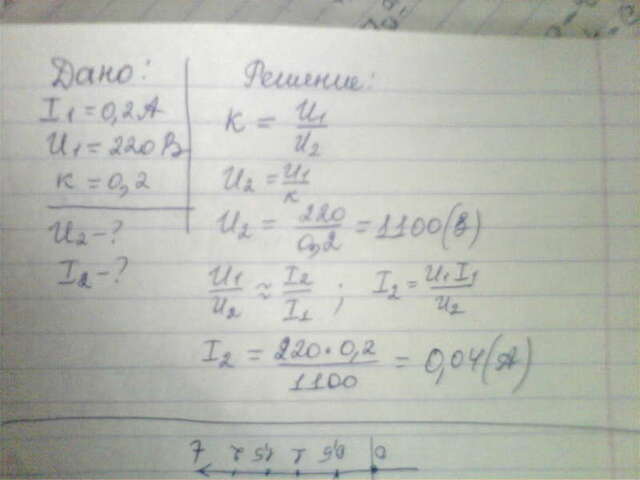 Дано:
I₁ = 0,2 А
U₁ = 220 В
к = 0,2
U₂ - ?
I₂ - ?
Решение:
К = U₁/U₂
U₂ = U₁/к
U₂ = 220/0,2 = 1100 (В)
U₁/U₂ ≈ I₂/I₁ ; I₂ = U₁ I₁/U₂
I₂ = 220 • 0,2/1100 = 0,04 (А)
0 0,5 1 1,5 2